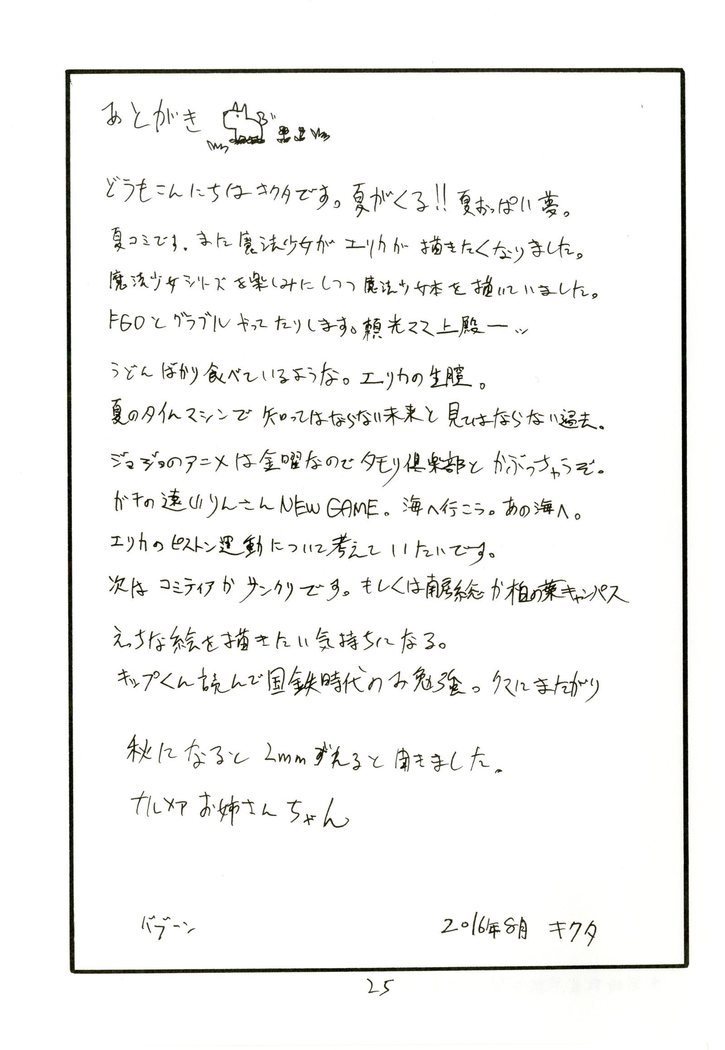 あとがき
どうもこんにちはキクタです。夏がくる!! 夏おっぱい夢。
夏コミです。また魔法少女がエリカが描きたくなりました。
魔法少女シリーズを楽しみにしつつ魔法少女本を描いていました。
FGOとグラブルやってたりします。頼光ママ上殿ーッ
うどんばかり食べているような。エリカの生膣。
夏のタイムマシンで知ってはならない未来と見てはならない過去。
ジョジョのアニメは金曜なのでタモリ倶楽部とかぶっちゃうぞ。
ガチの遠山りんさんNEW GAME。海へ行こう。あの海へ。
エリカのピストン運動について考えていたいです。
次はコミティアかサンクリです。もしくは南房総か柏の葉キャンパス
えっちな絵を描きたい気持ちになる。
キップくん読んで国鉄時代のお勉強。クマにまたがり
秋になると2mmずれると聞きました。
カルメアお姉さんちゃん
バブーン
2016年8月 キクタ
25